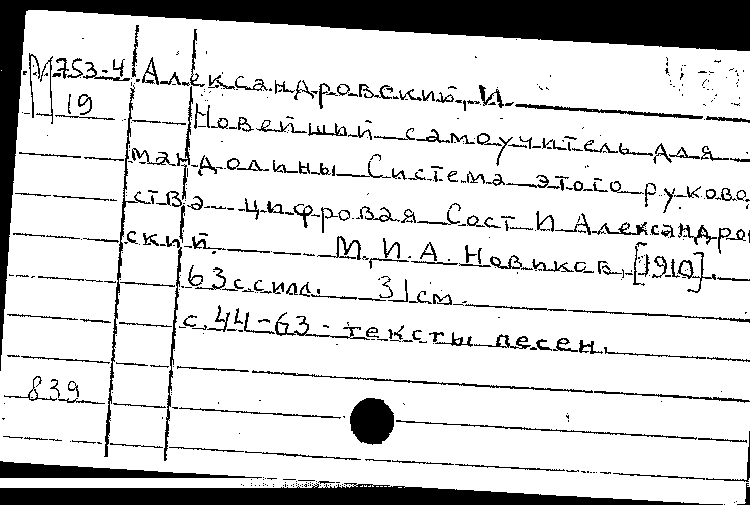 М753-4 Александровский, И.
19
Новейший самоучитель для
мандолины Система этого руково
ства цифровая Сост И Александро
ский. М., И.А. Новиков, [1910].
63 с. илл. 31 см.
с. 44-63 - тексты песен.
839